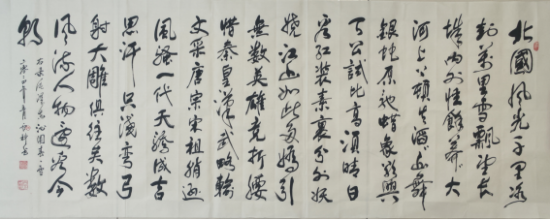 北國風光千里冰
封萬里雪飄望長
城内外惟餘莽大
河上下頓失滔山舞
銀蛇原馳蜡象欲與
天公試比高須晴日
看红装素裹分外妖
娆江山如此多嬌引
無數英雄竞折腰
惜秦皇漢武略輸
文采唐宗宋祖稍遜
風騷一代天骄成吉
思汗只識彎弓
射大雕俱往矣數
風流人物還看今
朝
毛澤東沁園春雪